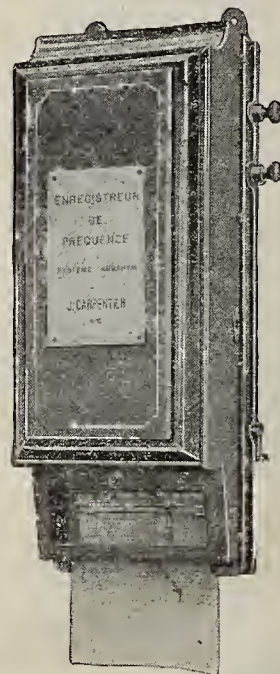 ENREGISTREUR
DE
FREQUENCE
SYSTÈME ABRAHAM
J. CARPENTIER